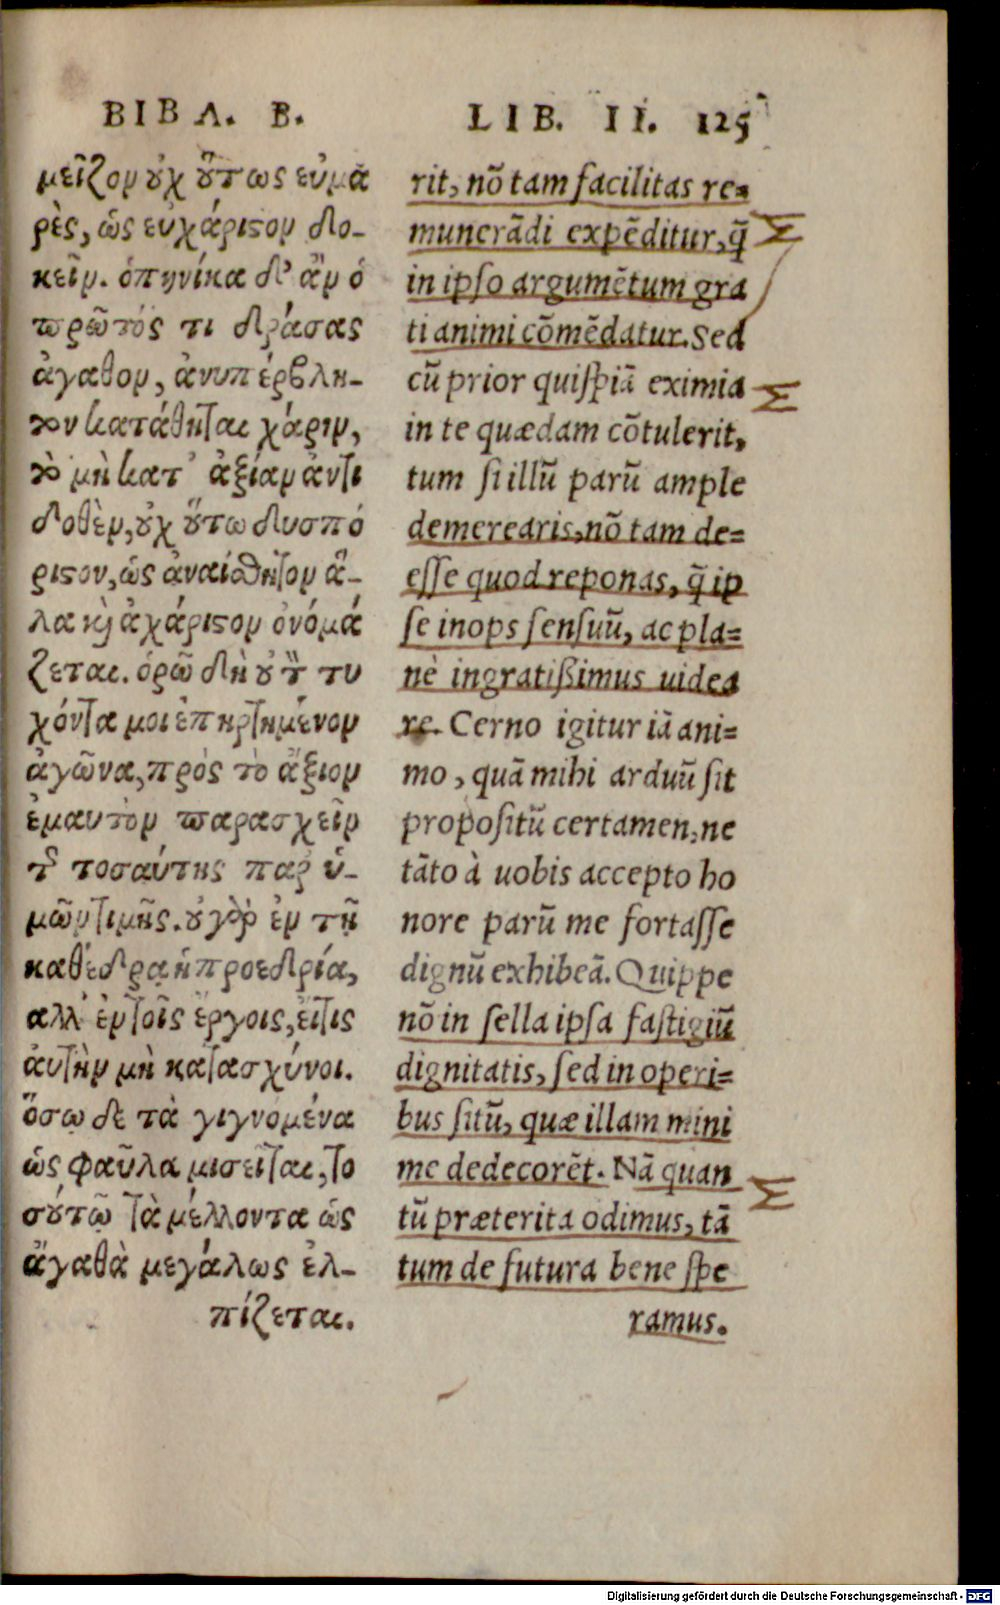 ΒΙΒΛ. Β.
μεῖζον οὐχ οὕτως εὐμα
ρὲς, ὡς εὐχάριστον δο-
κεῖν. ὁπηνίκα δ' ἂν ὁ
πρῶτός τι δράσας
ἀγαθον, ἀνυπέρβλη-
τον κατάθηται χάριν,
τὸ μὴ κατ' ἀξίαν ἀντι
δοθὲν, οὐχ οὕτω δυσπό
ριστον, ὡς ἀναίσθητον ἀ-
λα καὶ ἀχάριστον ὀνομά
ζεται. ὁρῶ δὴ τυ
χόντα μοι ἐπηρτημένον
ἀγῶνα, πρὸς τὸ ἄξιον
ἐμαυτὸν παρασχεῖν
τῆς τοσαύτης παρ ὑ-
μῶν τιμῆς. οὐ γὰρ ἐν τῇ
καθέδρα ἡ προεδρία,
αλλ' ἐν τοῖς ἔργοις, εἴτις
ἀυτὴν μὴ κατασχύνοι.
ὅσω δε τὰ γιγνόμενα
ὡς φαῦλα μισεῖται, το
σούτῳ τὰ μέλλοντα ὡς
ἄγαθὰ μεγάλως ἐλ-
πίζεται.
LIB. II. 125
rit, nõ tam facilitas re=
munerãdi expẽditur, q̃
in ipso argumẽtum gra
ti animi cõmẽdatur. Sed
cũ prior quispiã eximia
in te quædam cõtulerit,
tum si illũ parũ ample
demerearis, nõ tam de=
esse quod reponas, q̃ ip
se inops sensuũ, ac pla=
nè ingratißimus uidea
re. Cerno igitur iã ani=
mo, quã mihi arduũ sit
propositũ certamen, ne
tãto à uobis accepto ho
nore parũ me fortasse
dignũ exhibeã. Quippe
nõ in sella ipsa fastigiũ
dignitatis, sed in operi=
bus sitũ, quæ illam mini
me dedecorẽt. Nã quan
tũ præterita odimus, tã
tum de futura bene spe
ramus.
Digitalisierung gefördert durch die Deutsche Forschungsgemeinschaft - DFG